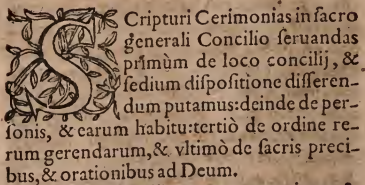 SCripturi Cerimonias in ſacro
generali Concilio ſeruandas
primùm de loco concilij, &
ſedium diſpoſitione diſſeren-
dum putamus: deinde de per-
ſonis, & earum habitu: tertiò de ordine re-
rum gerendarum, & vltimò de ſacris preci-
bus, & orationibus ad Deum.